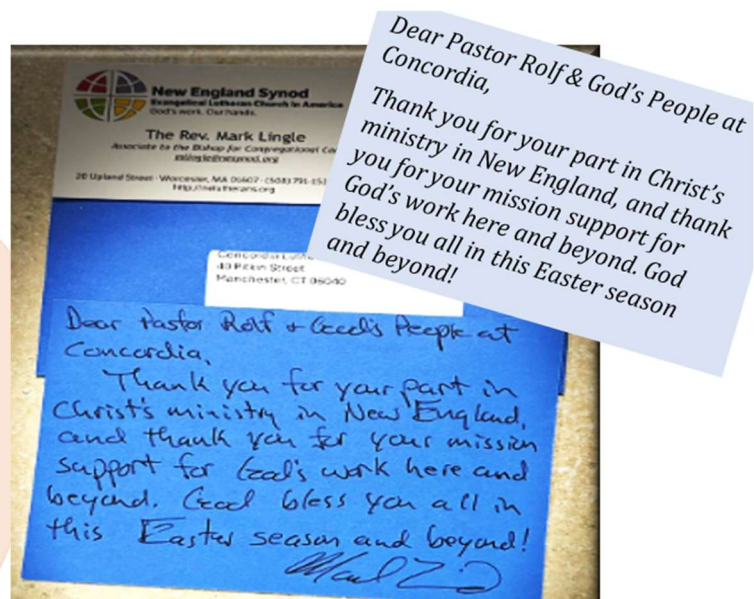 New England Synod
Evangelical Lutheran Church in America
God's work. Our hands.
The Rev. Mark Lingle
Associate to the Bishop for Congregational
20 Upland Street · Worcester, MA 01607 · (508) 791-
Concordia
40 Pitkin Street
Manchester, CT 06040
Dear Pastor Rolf & God's People at
Concordia,
Thank you for your part in
Christ's ministry in New England,
and thank you for your mission
support for God's work here and
beyond. God bless you all in
this Easter season and beyond!
Dear Pastor Rolf & God's People at
Concordia,
Thank you for your part in Christ's
ministry in New England, and thank
you for your mission support for
God's work here and beyond. God
bless you all in this Easter season
and beyond!